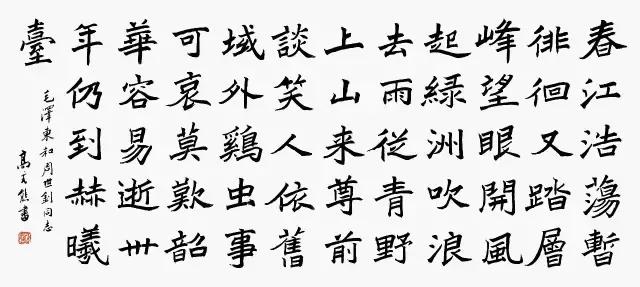 春江浩蕩暫
徘徊又踏層
峰望眼開風
起綠洲吹浪
去雨從青野
上山来尊前
談笑人依舊
域外鷄虫事
可哀莫歎韶
華容易逝卅
年仍到赫曦
臺
毛澤東和周世釗同志
高 書